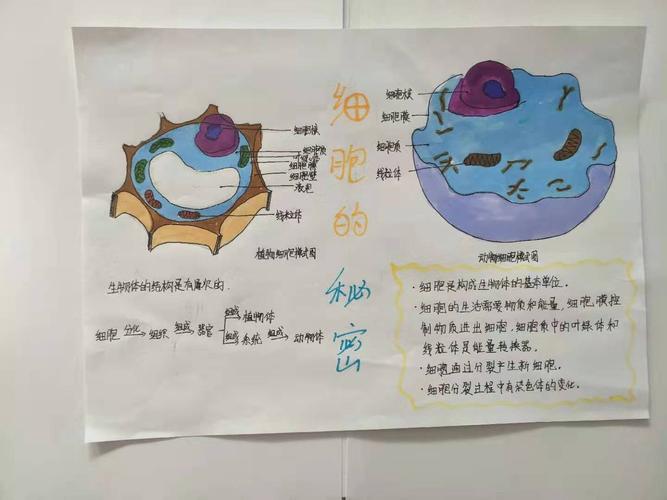 细胞的秘密
细胞核
细胞质
叶绿体
细胞膜
细胞壁
液泡
线粒体
植物细胞模式图
细胞核
细胞膜
细胞质
线粒体
动物细胞模式图
生物体的结构是有层次的.
细胞 分化 组织 组成 器官 组成 植物体
组成 系统 组成 动物体
·细胞是构成生物体的基本单位.
·细胞的生活需要物质和能量,细胞膜控
制物质进出细胞.细胞质中的叶绿体和
线粒体是能量转换器.
·细胞通过分裂产生新细胞.
·细胞分裂过程中有染色体的变化.